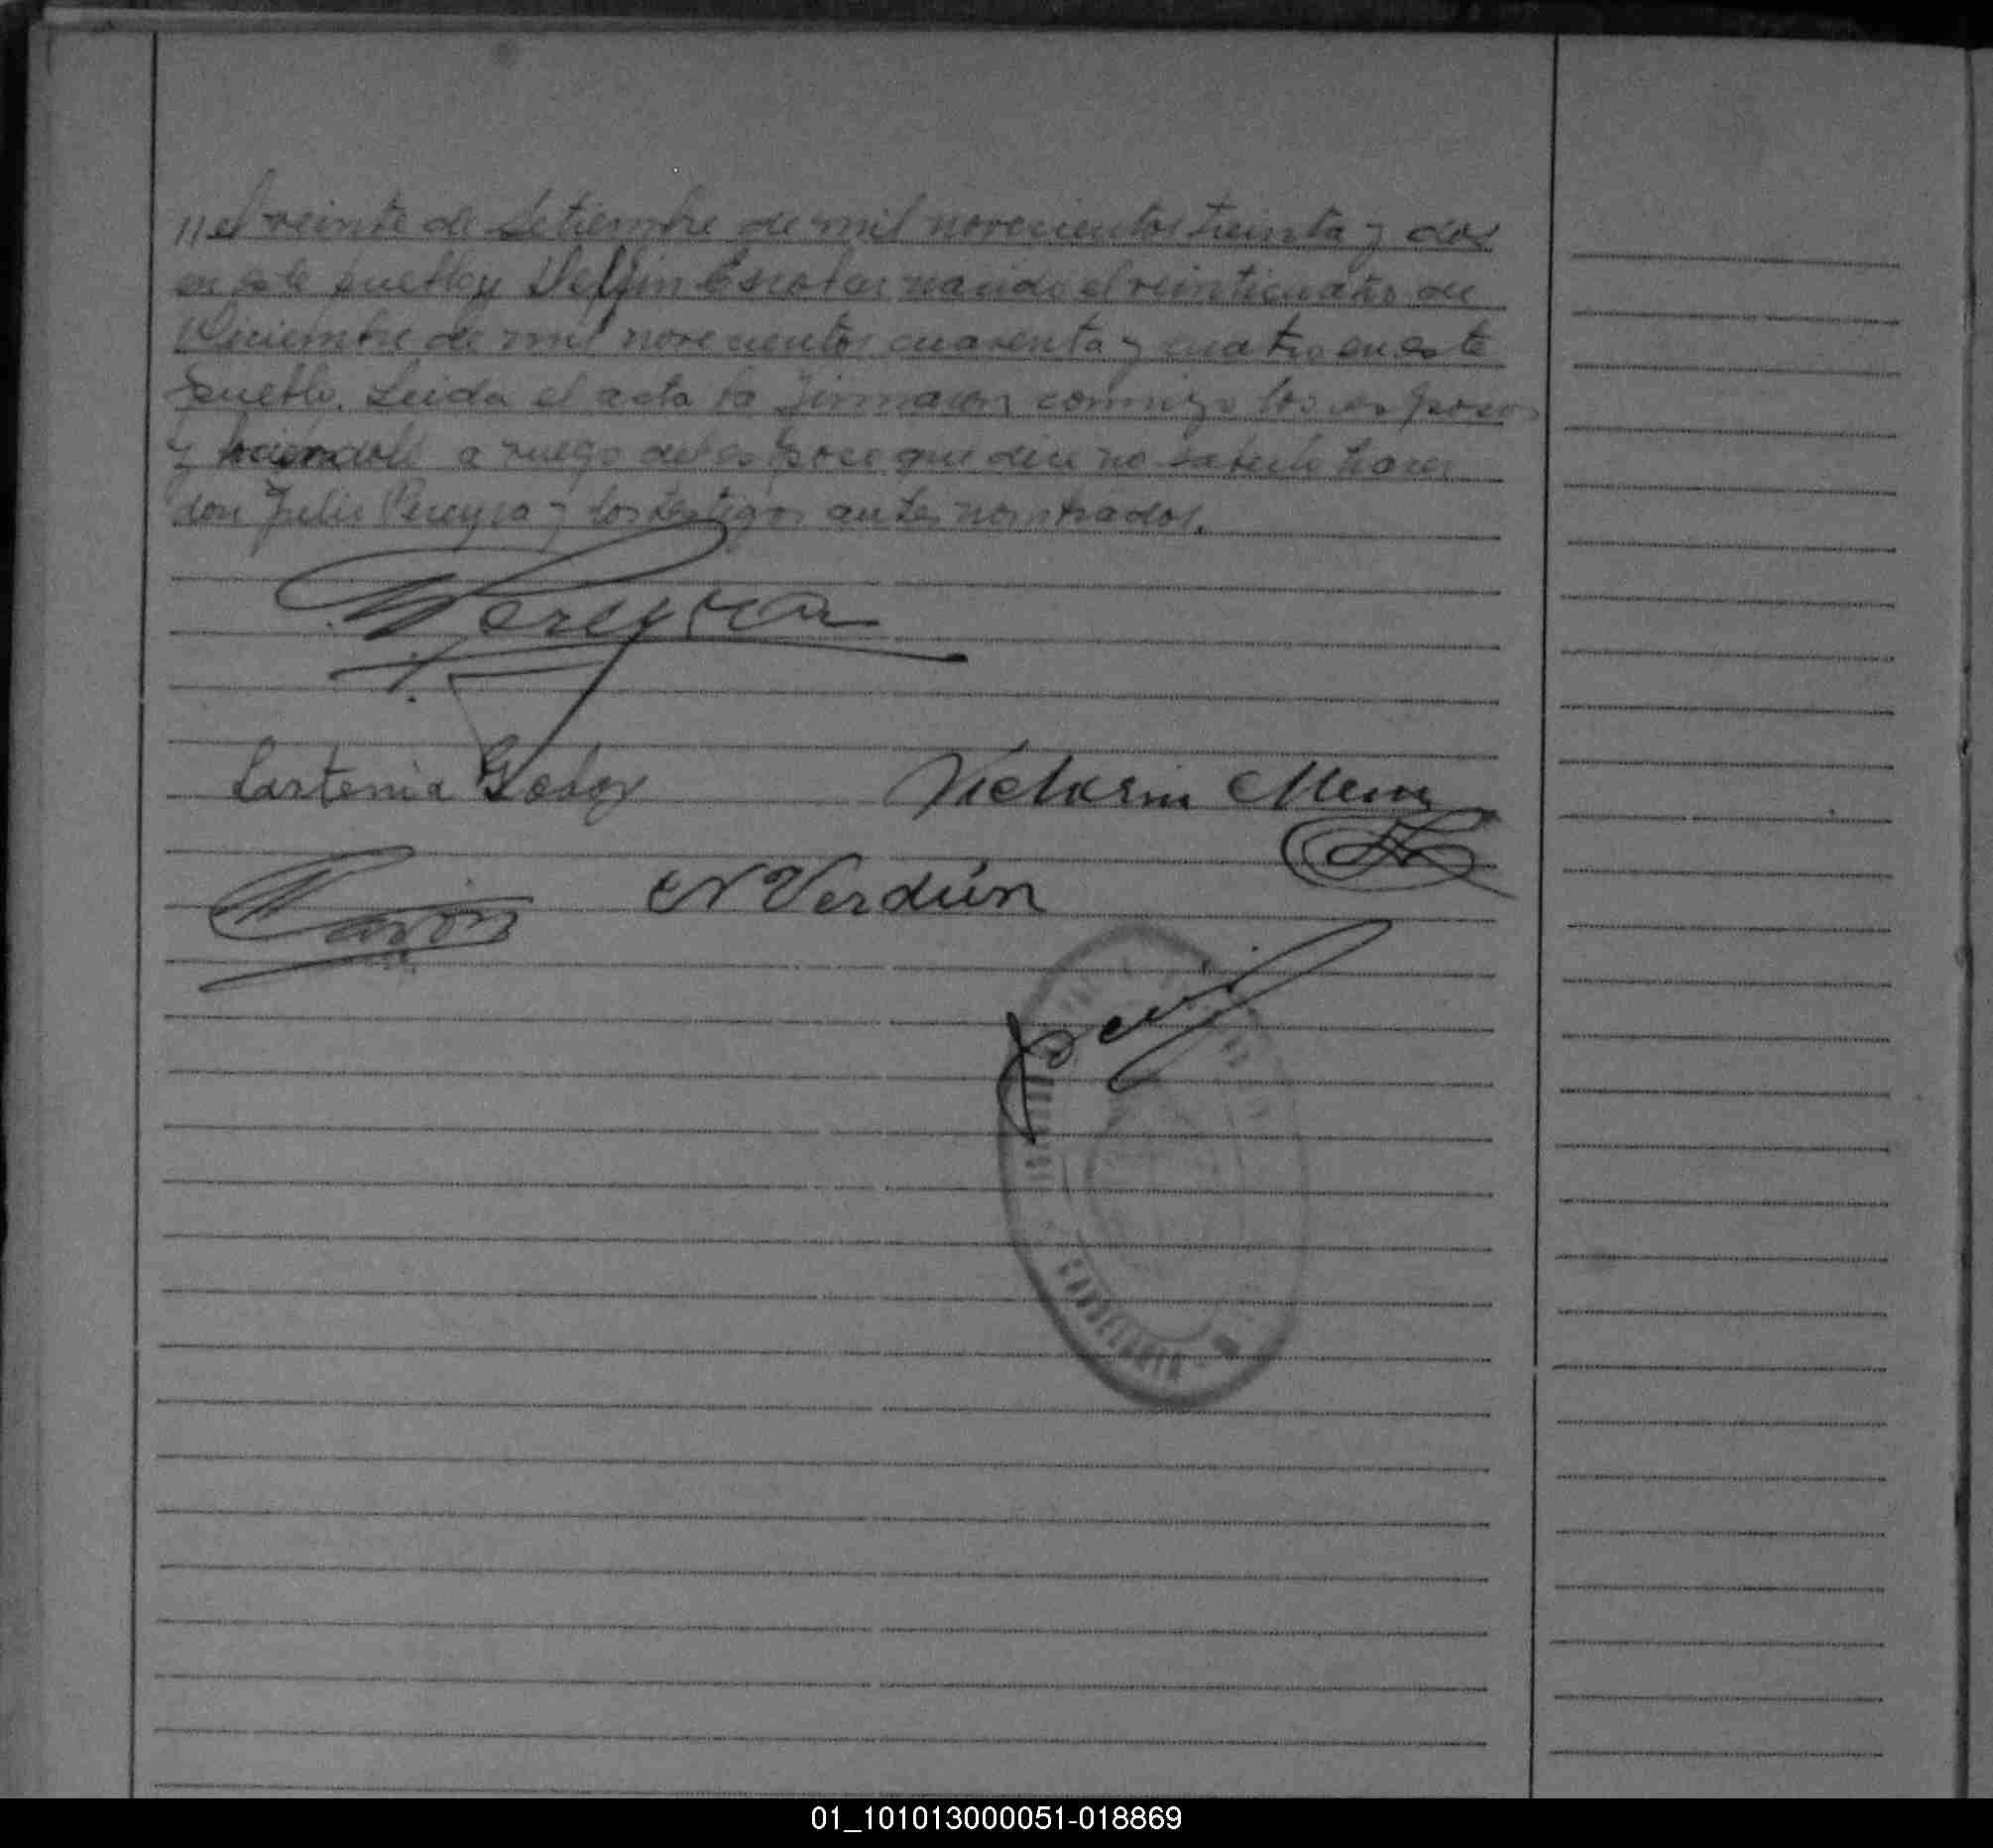 // el veinte de Setiembre de mil novecientos treinta y dos
en este pueblo y Delfin Escobar nacido el veinticuatro de
Diciembre de mil novecientos cuarenta y cuatro en este
pueblo. Leida el acta la firmaron conmigo los esposos
y haciendole a ruego del esposo que dice no saberlo hacer
don Julio Pereyra y los testigos antes nombrados.
Pereyra
Lastenia Godoy Victorin Mem
N Verdún
CANDELARIA
01_101013000051-018869